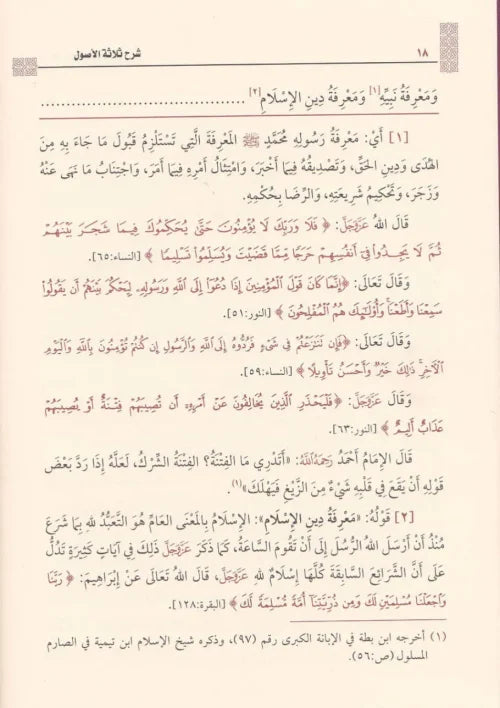 ١٨
شرح ثلاثة الأصول
وَمَعْرِفَةُ نَبِيِّهِ[١] وَمَعْرِفَةُ دِينِ الإِسْلَامِ[٢] ......................................
[١] أَيْ: مَعْرِفَةُ رَسُولِهِ مُحَمَّدٍ ﷺ المَعْرِفَةَ الَّتِي تَسْتَلْزِمُ قَبُولَ مَا جَاءَ بِهِ مِنَ
الهُدَى وَدِينِ الحَقِّ، وَتَصْدِيقُهُ فِيمَا أَخْبَرَ، وَامْتِثَالُ أَمْرِهِ فِيمَا أَمَرَ، وَاجْتِنَابُ مَا نَهَى عَنْهُ
وَزَجَرَ، وَتَحْكِيمُ شَرِيعَتِهِ، وَالرِّضَا بِحُكْمِهِ.
قَالَ اللهُ عَزَّوَجَلَّ: ﴿فَلَا وَرَبِّكَ لَا يُؤْمِنُونَ حَتَّىٰ يُحَكِّمُوكَ فِيمَا شَجَرَ بَيْنَهُمْ
ثُمَّ لَا يَجِدُوا۟ فِىٓ أَنفُسِهِمْ حَرَجًا مِّمَّا قَضَيْتَ وَيُسَلِّمُوا۟ تَسْلِيمًا﴾ [النساء:٦٥].
وَقَالَ تَعَالَى: ﴿إِنَّمَا كَانَ قَوْلَ ٱلْمُؤْمِنِينَ إِذَا دُعُوٓا۟ إِلَى ٱللَّهِ وَرَسُولِهِۦ لِيَحْكُمَ بَيْنَهُمْ أَن يَقُولُوا۟
سَمِعْنَا وَأَطَعْنَا ۚ وَأُو۟لَـٰٓئِكَ هُمُ ٱلْمُفْلِحُونَ﴾ [النور:٥١].
وَقَالَ تَعَالَى: ﴿فَإِن تَنَـٰزَعْتُمْ فِى شَىْءٍ فَرُدُّوهُ إِلَى ٱللَّهِ وَٱلرَّسُولِ إِن كُنتُمْ تُؤْمِنُونَ بِٱللَّهِ وَٱلْيَوْمِ
ٱلْـَٔاخِرِ ۚ ذَٰلِكَ خَيْرٌ وَأَحْسَنُ تَأْوِيلًا﴾ [النساء:٥٩].
وَقَالَ عَزَّوَجَلَّ: ﴿فَلْيَحْذَرِ ٱلَّذِينَ يُخَالِفُونَ عَنْ أَمْرِهِۦٓ أَن تُصِيبَهُمْ فِتْنَةٌ أَوْ يُصِيبَهُمْ
عَذَابٌ أَلِيمٌ﴾ [النور:٦٣].
قَالَ الإِمَامُ أَحْمَدُ رَحِمَهُ اللَّهُ: «أَتَدْرِي مَا الفِتْنَةُ؟ الفِتْنَةُ الشِّرْكُ، لَعَلَّهُ إِذَا رَدَّ بَعْضَ
قَوْلِهِ أَنْ يَقَعَ فِي قَلْبِهِ شَيْءٌ مِنَ الزَّيْغِ فَيَهْلَكَ»(١).
[٢] قَوْلُهُ: «مَعْرِفَةُ دِينِ الإِسْلَامِ»: الإِسْلَامُ بِالْمَعْنَى العَامِّ هُوَ التَّعَبُّدُ للهِ بِمَا شَرَعَ
مُنْذُ أَنْ أَرْسَلَ اللهُ الرُّسُلَ إِلَى أَنْ تَقُومَ السَّاعَةُ، كَمَا ذَكَرَ عَزَّوَجَلَّ ذَلِكَ فِي آيَاتٍ كَثِيرَةٍ تَدُلُّ
عَلَى أَنَّ الشَّرَائِعَ السَّابِقَةَ كُلَّهَا إِسْلَامٌ للهِ عَزَّوَجَلَّ، قَالَ اللهُ تَعَالَى عَنْ إِبْرَاهِيمَ: ﴿رَبَّنَا
وَٱجْعَلْنَا مُسْلِمَيْنِ لَكَ وَمِن ذُرِّيَّتِنَآ أُمَّةً مُّسْلِمَةً لَّكَ﴾ [البقرة:١٢٨].
(١) أخرجه ابن بطة في الإبانة الكبرى رقم (٩٧)، وذكره شيخ الإسلام ابن تيمية في الصارم
المسلول (ص:٥٦).